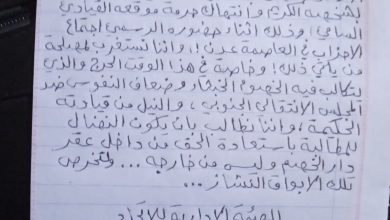 لشخصه الكريم وانتهاك حرمة موقعه القيادي
السامي، وذلك اثناء حضوره الرسمي اجتماع
الاحزاب في العاصمة عدن!، واننا نستغرب لمصلحة
من يأتي ذلك! وخاصة في هذا الوقت الحرج والذي
تتكالب فيه الخصوم الخبثاء وضعاف النفوس ضد
المجلس الانتقالي الجنوبي، والنيل من قيادته
الحكيمة، واننا نطالب بان يكون النضال
للمطالبة باستعادة الحق من داخل عقر
دار الخصم وليس من خارجه ... ولتخرص
تلك الابواق النشاز...
الهيئة الادارية للاتحاد